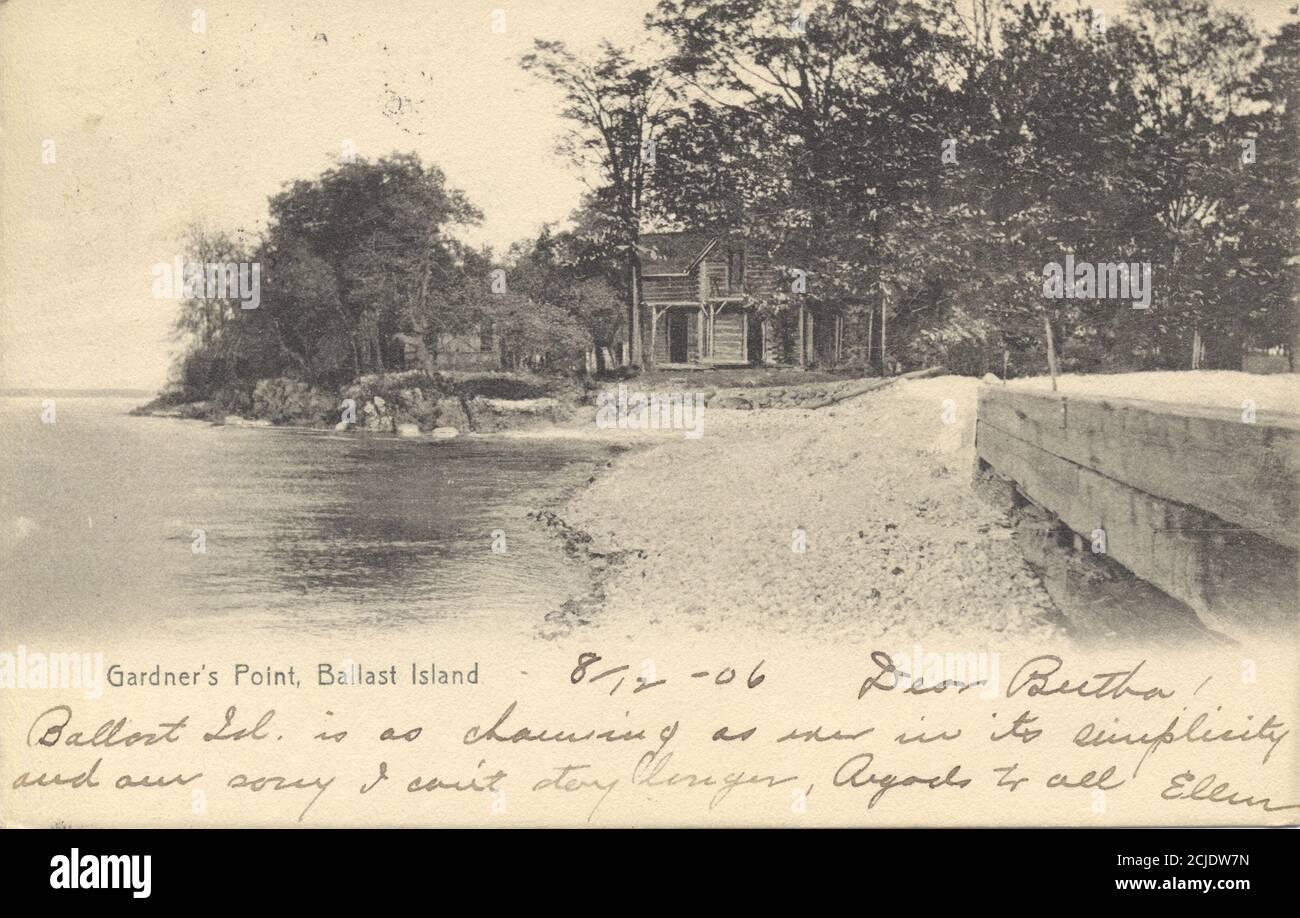 Gardner's Point, Ballast Island
8/12 -06 Dear Bertha!
Ballast Isl. is as charming as ever in its simplicity
and am sorry I can't stay longer, Regards to all Ellen
alamy
a
alamy
a
alamy
alamy
alamy
Image ID: 2CJDW7N
www.alamy.com